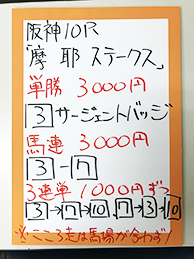 阪神10R
「摩耶ステークス」
単勝 3000円
3 サージェントバッジ
馬連 3000円
3-7
3連単 1000円ずつ
3→7→10、7→3→10
※こころ走は馬場が合わず!